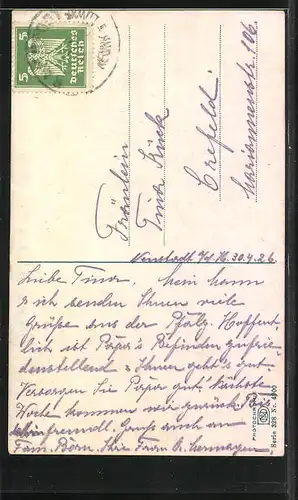 5 5
Deutsches
Reich
Fräulein
Tina Kück
Crefeld
Mariannenstr. 106.
Neustadt a/d. H. 30.4.26
Liebe Tina. Mein Mann
& ich senden Ihnen viele
Grüße aus der Pfalz. Hoffent-
lich ist Papa's Befinden zufrie-
denstellend & Ihnen geht's gut.
Versorgen Sie Papa gut! Nächste
Woche kommen wir zurück.
Gruß auch an
Fam. Born. Ihre Frau
PHOTOCHROM
Serie 328 Nr.